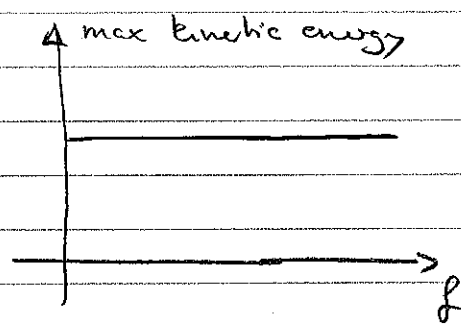 max kinetic energy
f